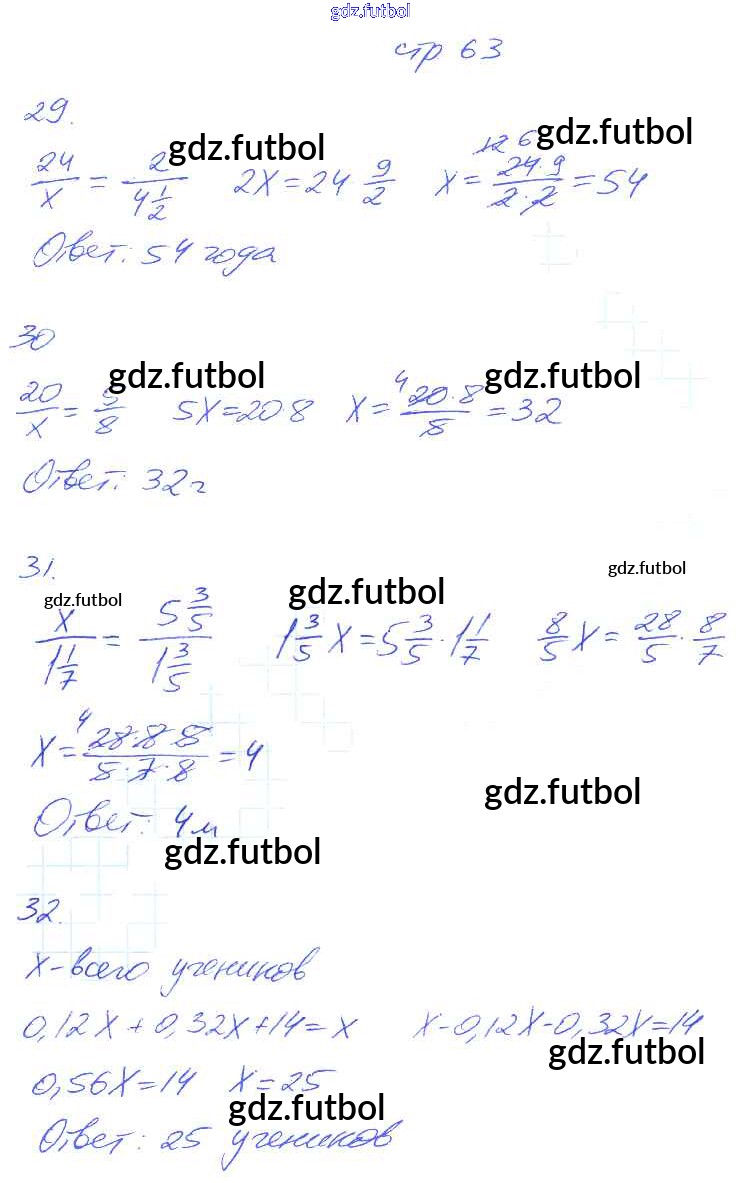 gdz.futbol
стр 63
29.
gdz.futbol gdz.futbol
24/x = 2/4 1/2 2x = 24 9/2 x = 12 6 24·9/2·2 = 54
Ответ: 54 года
30
gdz.futbol gdz.futbol
20/x = 5/8 5x = 20 8 x = 4 20·8/5 = 32
Ответ: 32 г
31.
gdz.futbol gdz.futbol gdz.futbol
x/1 1/7 = 5 3/5/1 3/5 1 3/5 x = 5 3/5 · 1 1/7 8/5 x = 28/5 · 8/7
x = 4 28·8·5/5·7·8 = 4
gdz.futbol
Ответ: 4 м
gdz.futbol
32.
x - всего учеников
0,12x + 0,32x + 14 = x x - 0,12x - 0,32x = 14
gdz.futbol
0,56x = 14 x = 25
gdz.futbol
Ответ: 25 учеников